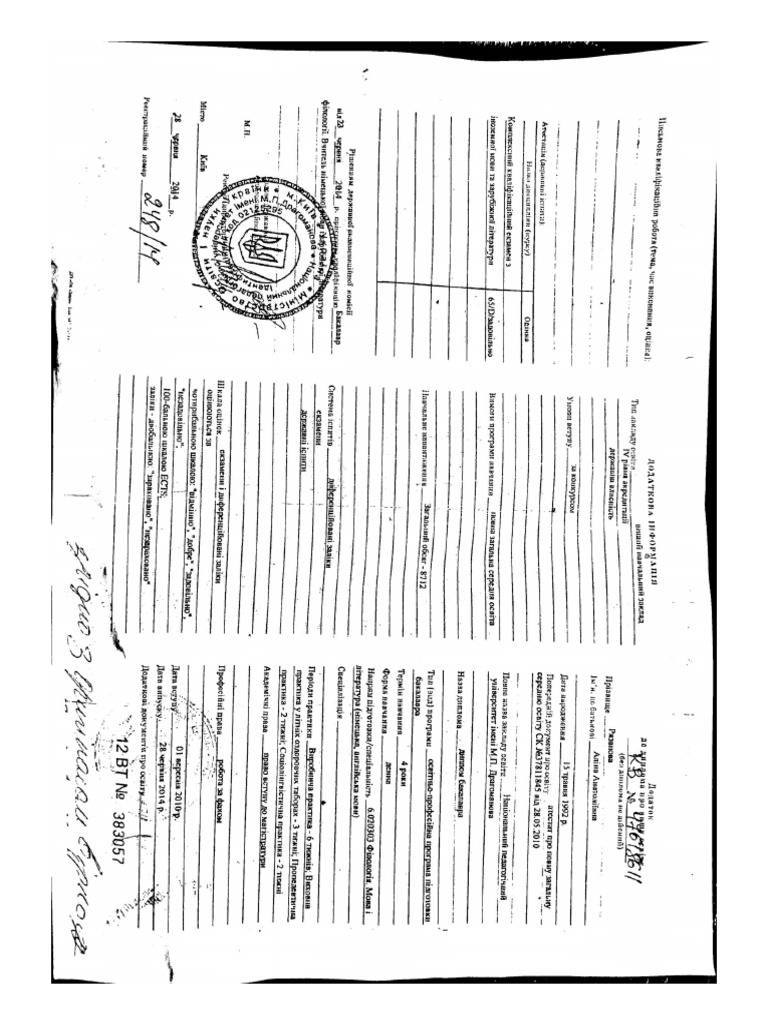 Додаток
до диплома про вищу освіту
КВ № 47612611
(без диплома не дійсний)
Прізвище Рязанова
Ім'я, по батькові Аліна Анатоліївна
Дата народження 15 травня 1992 р.
Попередній документ про освіту атестат про повну загальну
середню освіту СК №37811845 від 28.05.2010
Повна назва закладу освіти Національний педагогічний
університет імені М.П. Драгоманова
Назва диплома диплом бакалавра
Тип (вид) програми освітньо-професійна програма підготовки
бакалавра
Термін навчання 4 роки
Форма навчання денна
Напрям підготовки/спеціальність 6.020303 Філологія. Мова і
література (німецька, англійська мови)
Спеціалізація
Періоди практики Виробнича практика - 6 тижнів; Виховна
практика у літніх оздоровчих таборах - 3 тижні; Пропедевтична
практика - 2 тижні; Соціолінгвістична практика - 2 тижні
Академічні права право вступу до магістратури
Професійні права робота за фахом
Дата вступу 01 вересня 2010 р.
Дата випуску 28 червня 2014 р.
Додаткові документи про освіту
12 ВТ № 383057
ДОДАТКОВА ІНФОРМАЦІЯ
Тип закладу освіти вищий навчальний заклад
IV рівня акредитації
державна власність
Умови вступу за конкурсом
Вимоги програми навчання повна загальна середня освіта
Навчальне навантаження Загальний обсяг - 8712
Система іспитів диференційовані заліки
екзамени
державні іспити
Шкала оцінок екзамени і диференційовані заліки
оцінюються за
чотирибальною шкалою: "відмінно", "добре", "задовільно",
"незадовільно";
100-бальною шкалою ECTS;
заліки - двобальною: "зараховано", "незараховано"
Письмова кваліфікаційна робота (тема, час виконання, оцінка):
Атестація (державні іспити)
Назва дисципліни (курсу) Оцінка
Комплексний кваліфікаційний екзамен з
іноземної мови та зарубіжної літератури 65/D/задовільно
Рішенням державної екзаменаційної комісії
від 23 червня 2014 р. присвоєно кваліфікацію Бакалавр
філології. Вчитель німецької
М.П.
Місто Київ
28 червня 2014 р.
Реєстраційний номер 248/14
Міністерство освіти
Національний педагогічний
імені М.П. Драгоманова
м. Київ
02125295
Згідно з оригіналом